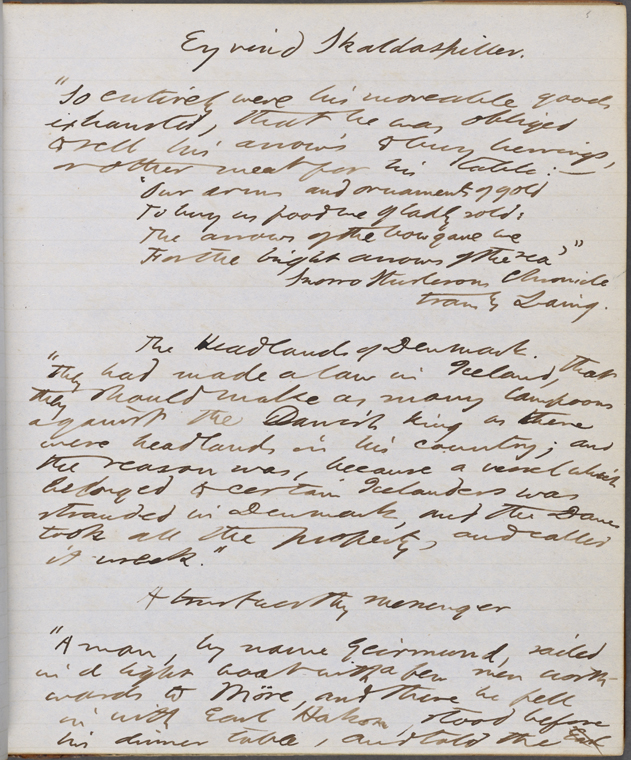 Eyvind Skaldaspiller.
"So entirely were his moveable goods
exhausted, that he was obliged
to sell his arrows to buy herrings,
or other meat for his table:—
"Our arms and ornaments of gold
To buy us food we gladly sold:
The arrows of the bow gave we
For the bright arrows of the sea'"
Snorro Sturlesons Chronicle
trans by Laing.
The Headlands of Denmark.
"They had made a law in Iceland, that
they should make as many lampoons
against the Danish king as there
were headlands in his country; and
the reason was, because a vessel which
belonged to certain Icelanders was
stranded in Denmark, and the Danes
took all the property, and called
it wreck."
A trustworthy messenger
"A man, by name Geirmund, sailed
in a light boat with a few men north-
wards to Möre, and there he fell
in with Earl Hakon, stood before
his dinner table, and told the Earl